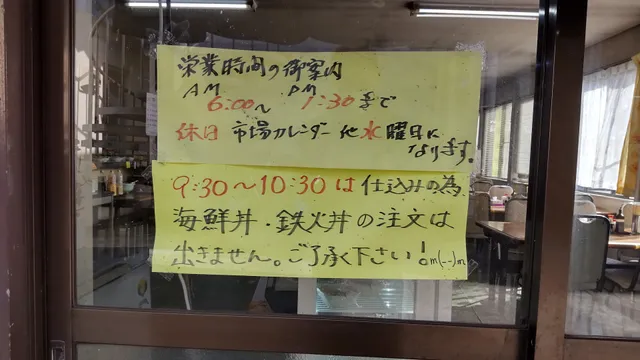 営業時間の御案内
AM PM
6:00〜 1:30まで
休日 市場カレンダー他水曜日に
なります。
9:30〜10:30は仕込みの為
海鮮丼・鉄火丼の注文は
出きません。ご了承下さい!。m(--)m